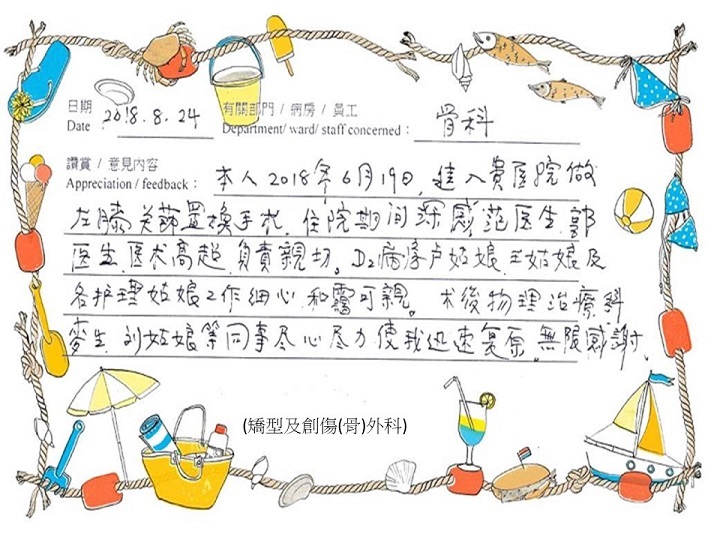 日期 2018.8.24 有關部門 / 病房 / 員工 骨科
Date : Department/ ward/ staff concerned :
讚賞 / 意見內容
Appreciation / feedback : 本人2018年6月19日,進入貴医院做
左膝关節置換手术,住院期间深感范医生,郭
医生,医术高超,負責親切。D2病房卢姑娘,王姑娘及
各护理姑娘工作细心,和靄可親。术後物理治療科
麥生,刘姑娘等同事尽心尽力使我迅速复原,無限感謝.
(矯型及創傷(骨)外科)